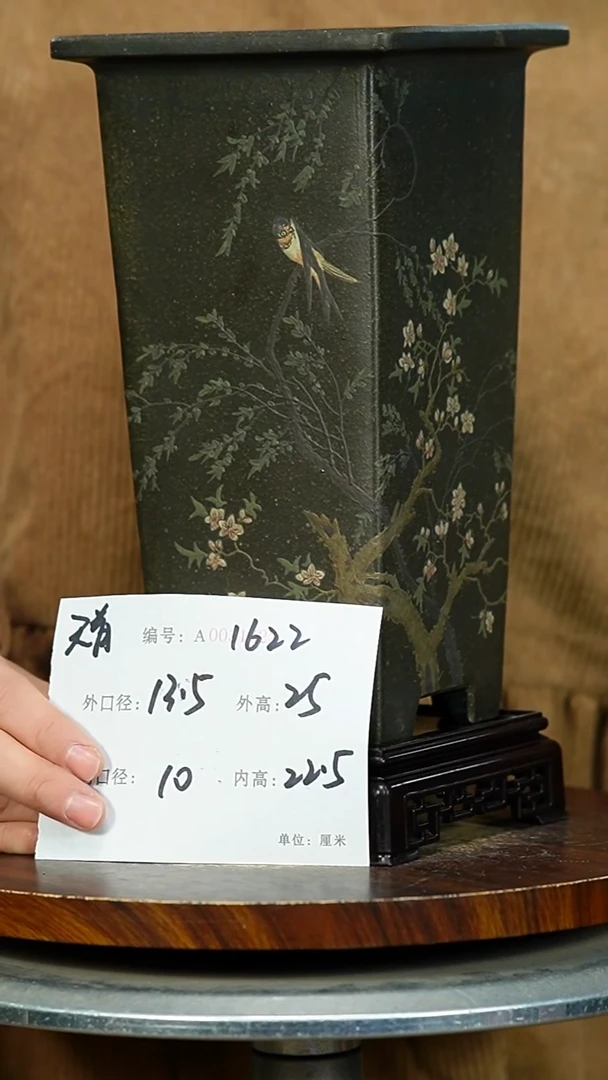 编号: A00 1622
外口径: 13.5 外高: 25
口径: 10 内高: 22.5
单位: 厘米